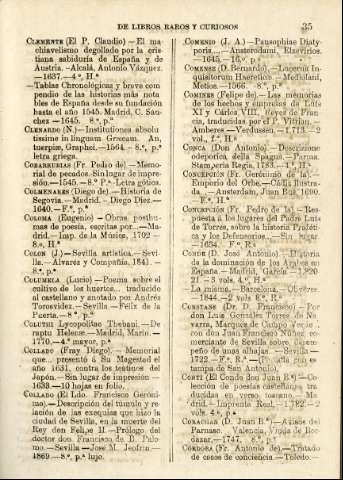 DE LIBROS RAROS Y CURIOSOS 35
CLEMENTE (El P. Claudio) — El ma-
chiavelismo degollado por la cris
tiana sabiduria de España y de
Austria. — Alcalá, Antonio Vázquez.
— 1637. — 4.º, H.ª
— Tablas Chronológicas y breve com
pendio de las historias más nota
bles de España desde su fundación
hasta el año 1645. Madrid, C. San
chez — 1645. 8.º, p.ª
CLENARDO (N.) — Institutiones absolu
tissime in linguam Græcam. An,
tuerpiæ, Graphei. — 1564. — 8.º, p.ª
letra griega.
COBARRUBIAS (Fr. Pedro de) — Memo-
rial de pecados. Sin lugar de impre-
sión. — 1545. — 8.º P.ª Letra gótica.
COLMENARES (Diego de). — Historia de
Segovia. — Madrid. — Diego Diez. —
1640. — F.º, p.ª
COLOMA (Eugenio) — Obras posthu-
mas de poesía, escritas por... — Ma-
drid. — Imp. de la Música, 1702 —
8.º, H.ª
COLON (J.) — Sevilla artistica. — Sevi-
lla. — Alvarez y Compañia, 1841. —
8.º, p.ª
COLUMELA (Lucio) — Poema sobre el
cultivo de los huertos... traducido
al castellano y anotado por Andrés
Torcevidez. — Sevilla — Félix de la
Puerta. — 8.º, p.ª
COLUTHI Lycopolitae Thebani. — De
raptu Helenæ. — Madrid, Marin. —
1770. — 4.º mayor, p.ª
COLLADO (Fray Diego). — Memorial
que... presentó á Su Magestad el
año 1631, contra los testimos del
Japón. — Sin lugar de impresión —
1633. — 10 hojas en folio.
COLLADO (El Ldo. Francisco Geróni-
mo). — Descripción del túmulo y re-
lación de las exequias que hizo la
ciudad de Sevilla, en la muerte del
Rey don Felipe II. — Prólogo del
doctor don Francisco de B. Palo-
mo. — Sevilla — José M. Jeofrin —
1869. — 8.º, p.ª lujo.
COMENIO (J. A.) — Pansophiae Diaty-
posis... — Amsterodami, Elzevirios.
— 1645. — 16.º, p.ª
COMENSE (D. Bernardo). — Lucerna In-
quisitorum Haereticæ. — Mediolani,
Metios. — 1566. — 8.º, p.ª
COMINES (Felipe de). — Las memorias
de los hechos y empresas de Luis
XI y Carlos VIII, Reyes de Fran
cia, traducidas por
Amberes. — Verdussen. — 1,713. — 2
vol., f.º H.ª
CONCA (Don Antonio) — Descrizione
odeporica della Spagna. — Parma
Stamperia Regia, 1783. — 4.º, H.ª
CONCEPCIÓN (Fr. Gerónimo de la). —
Emporio del Orbe. — Cádiz Ilustra-
da. — Amsterdam, Juan Bus, 1690.
F.º, H.ª
CONCEPCIÓN (Fr. Pedro de la) — Res-
puesta á los lugares del Padre Luis
de Torres, sobre la historia Proféti
ca y los Defensorios. — Sin lugar
— 1634. F.º, R.ª
CONDE (D. José Antonio). — Historia
de la dominación de los Arabes en
España — Madrid, García — 1,820
21. — 3 vols. 4.º, H.ª
— La misma. — Barcelona. — Oliveres.
— 1844. — 2 vols 8.º, R.ª
CONSTANS (Dr. D. Francisco) — Por
don Luis González Torres de Na
varra, Marqués de Campo Verde,
con don Juan Francisco Núñez co-
merciante de Sevilla, sobre desem-
peño de unas alhajas. — Sevilla —
1722. — F.º, R.ª — (Portada con es
tampa de San Antonio).
CONTI (El Conde don Juan B.ª) — Co-
lección de poesías castellanas tra
ducidas en verso toscano. — Ma-
drid. — Imprenta Real. — 1,782. — 2
vols. 4.º, p.ª
CORACHAN (D. Juan B.ª) — Avisos del
Parnaso. Valencia, Viuda de Bor-
dazar. — 1747. 8.º, p.ª
CÓRDOBA (Fr. Antonio de). — Tratado
de casos de conciencia. — Toledo. —